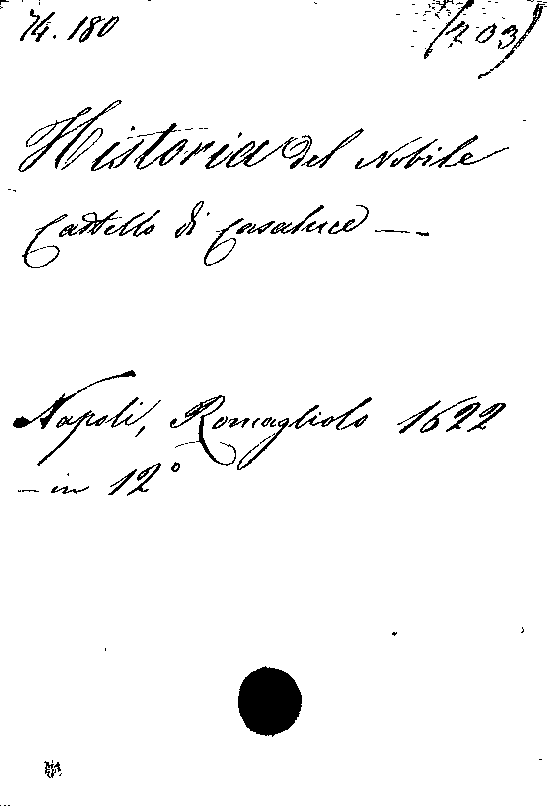 74. 180 (203)
Historia del Nobile
Castello di Casaluce —
Napoli, Romagliolo 1622
— in 12°